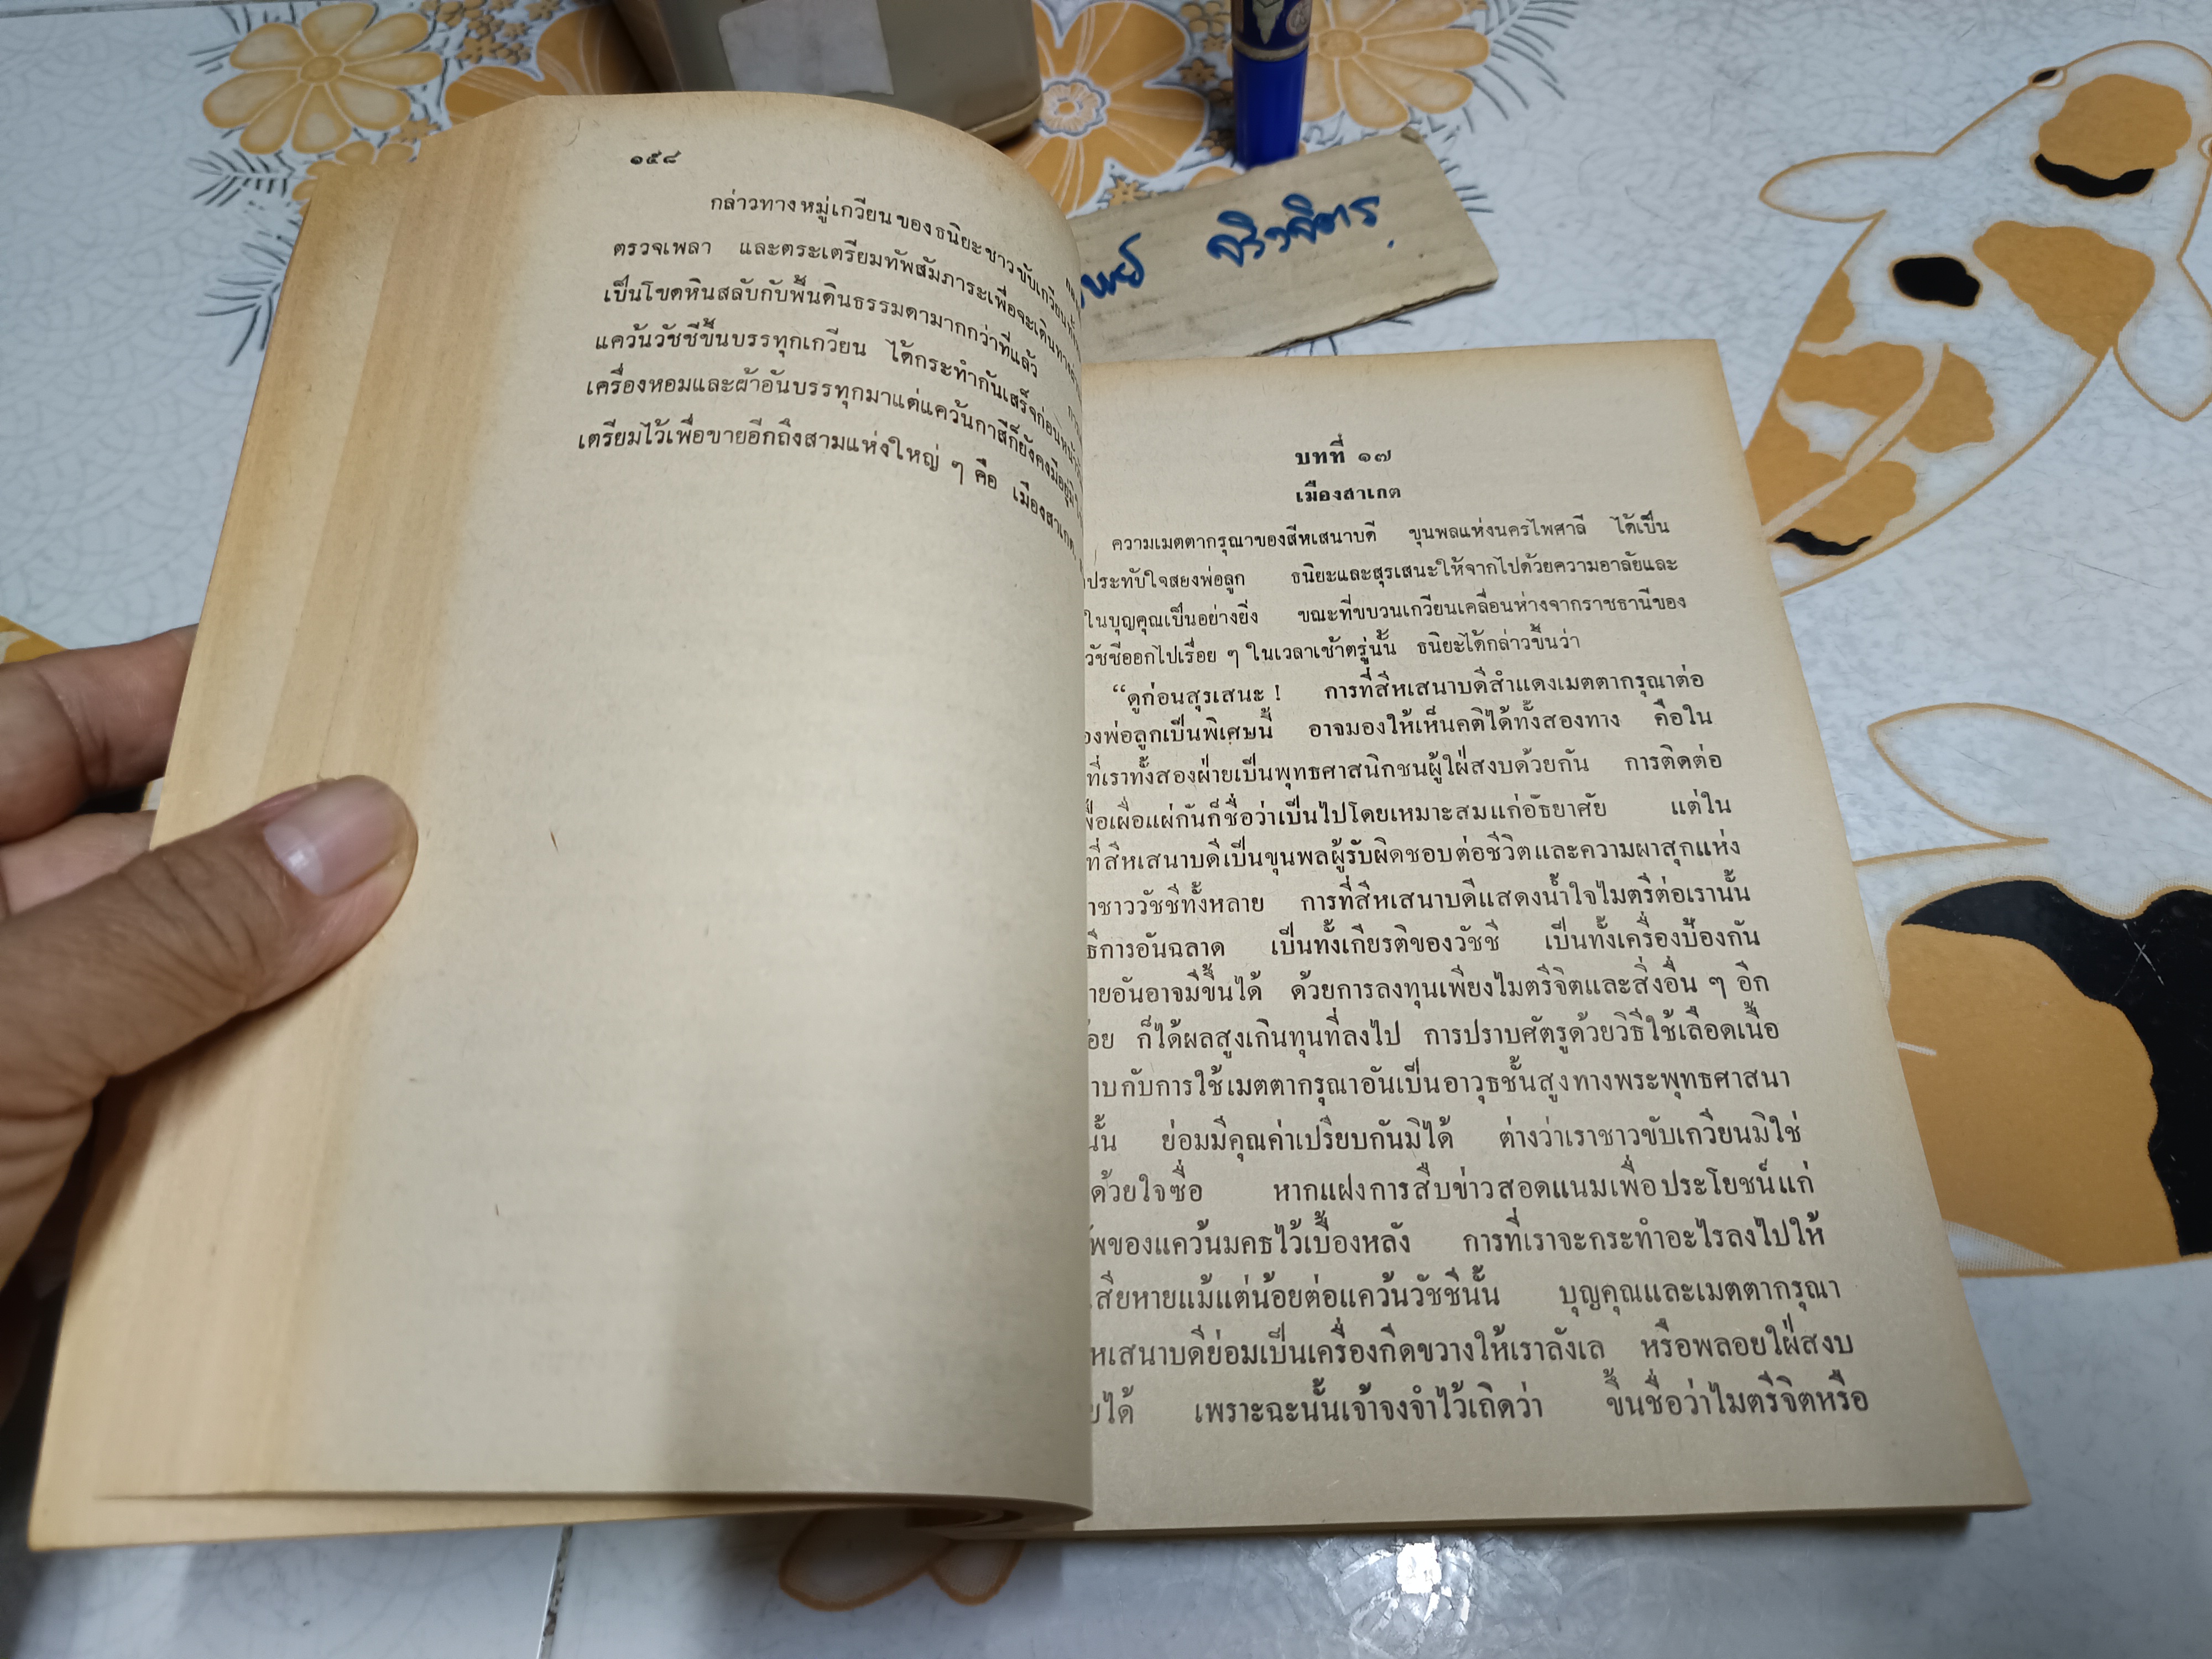 ๑๕๘
กล่าวทางหมู่เกวียนของธนิยะชาวขับเกวียน
ตรวจเพลา และตระเตรียมทัพสัมภาระเพื่อจะเดินทาง
เป็นโขดหินสลับกับพื้นดินธรรมดามากกว่าที่แล้ว
แคว้นวัชชีขึ้นบรรทุกเกวียน ได้กระทำกันเสร็จก่อน
เครื่องหอมและผ้าอันบรรทุกมาแต่แคว้นกาสีก็ยังคงมีอยู่
เตรียมไว้เพื่อขายอีกถึงสามแห่งใหญ่ ๆ คือ เมืองสาเกต
จิรวจิตร
บทที่ ๑๗
เมืองสาเกต
ความเมตตากรุณาของสีหเสนาบดี ขุนพลแห่งนครไพศาลี ได้เป็น
ประทับใจสองพ่อลูก ธนิยะและสุรเสนะให้จากไปด้วยความอาลัยและ
ในบุญคุณเป็นอย่างยิ่ง ขณะที่ขบวนเกวียนเคลื่อนห่างจากราชธานีของ
วัชชีออกไปเรื่อย ๆ ในเวลาเช้าตรู่นั้น ธนิยะได้กล่าวขึ้นว่า
“ดูก่อนสุรเสนะ ! การที่สีหเสนาบดีสำแดงเมตตากรุณาต่อ
พ่อลูกเป็นพิเศษนี้ อาจมองให้เห็นคติได้ทั้งสองทาง คือใน
ที่เราทั้งสองฝ่ายเป็นพุทธศาสนิกชนผู้ใฝ่สงบด้วยกัน การติดต่อ
เผื่อแผ่กันก็ชื่อว่าเป็นไปโดยเหมาะสมแก่อัธยาศัย แต่ใน
ที่สีหเสนาบดีเป็นขุนพลผู้รับผิดชอบต่อชีวิตและความผาสุกแห่ง
ชาววัชชีทั้งหลาย การที่สีหเสนาบดีแสดงน้ำใจไมตรีต่อเรานั้น
การอันฉลาด เป็นทั้งเกียรติของวัชชี เป็นทั้งเครื่องป้องกัน
อันอาจมีขึ้นได้ ด้วยการลงทุนเพียงไมตรีจิตและสิ่งอื่น ๆ อีก
ก็ได้ผลสูงเกินทุนที่ลงไป การปราบศัตรูด้วยวิธีใช้เลือดเนื้อ
กับการใช้เมตตากรุณาอันเป็นอาวุธชั้นสูงทางพระพุทธศาสนา
นั้น ย่อมมีคุณค่าเปรียบกันมิได้ ต่างว่าเราชาวขับเกวียนมิใช่
ด้วยใจซื่อ หากแฝงการสืบข่าวสอดแนมเพื่อประโยชน์แก่
ของแคว้นมคธไว้เบื้องหลัง การที่เราจะกระทำอะไรลงไปให้
เสียหายแม้แต่น้อยต่อแคว้นวัชชีนั้น บุญคุณและเมตตากรุณา
หเสนาบดีย่อมเป็นเครื่องกีดขวางให้เราลังเล หรือพลอยใฝ่สงบ
ได้ เพราะฉะนั้นเจ้าจงจำไว้เถิดว่า ขึ้นชื่อว่าไมตรีจิตหรือ